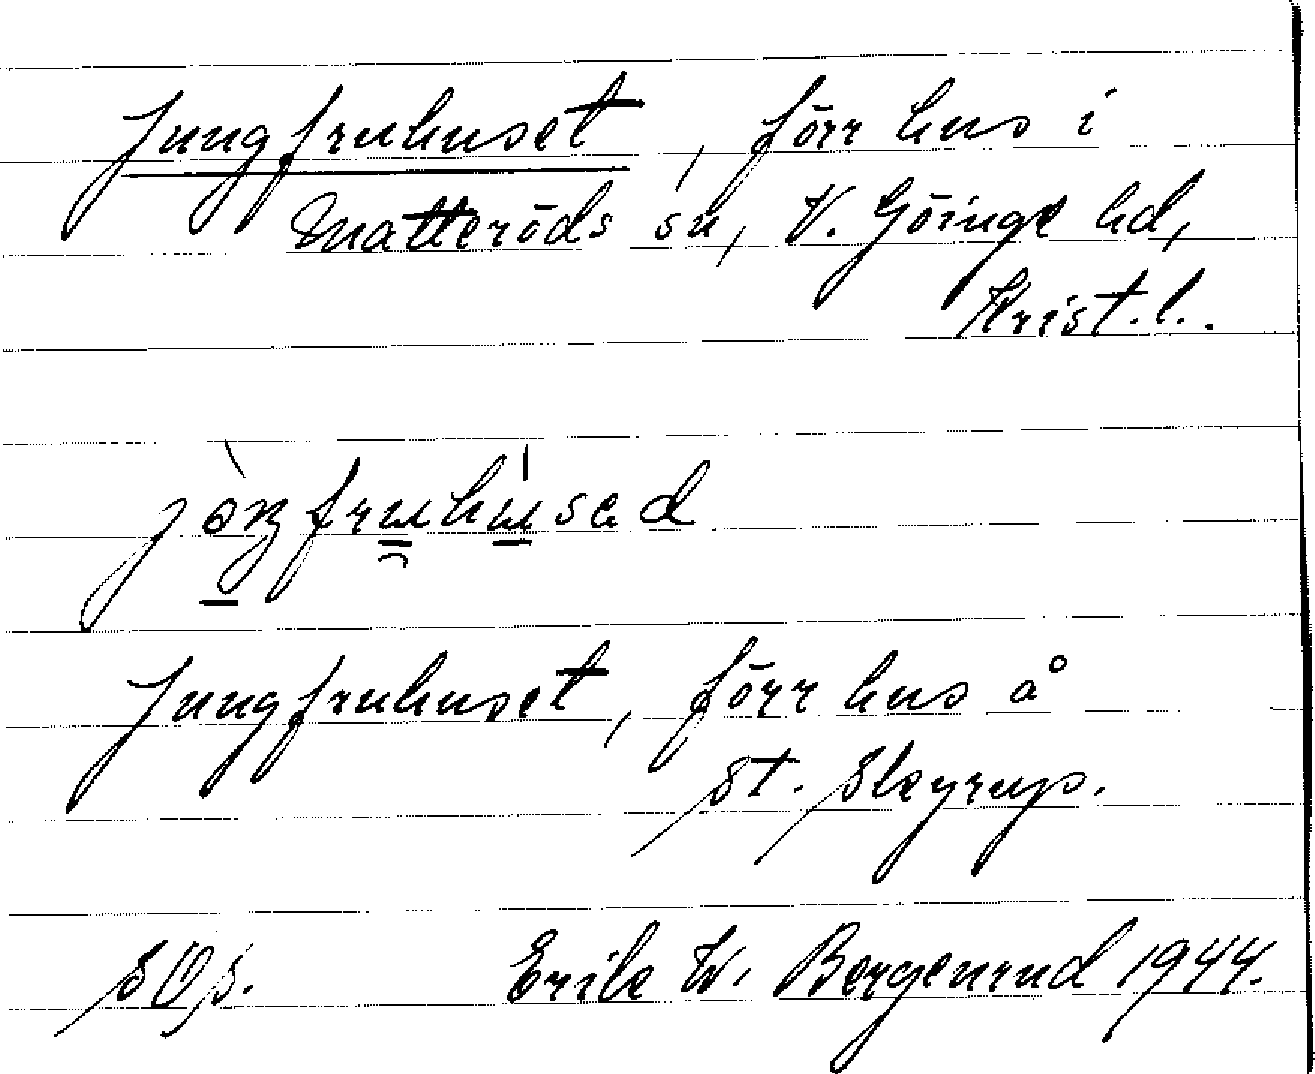 Jungfruhuset, förr hus i
Matteröds sn, V. Göinge hd,
Krist. l..
Jungfruhuset, förr hus å
St. Skyrup.
Erik W. Bergenrud 1944.